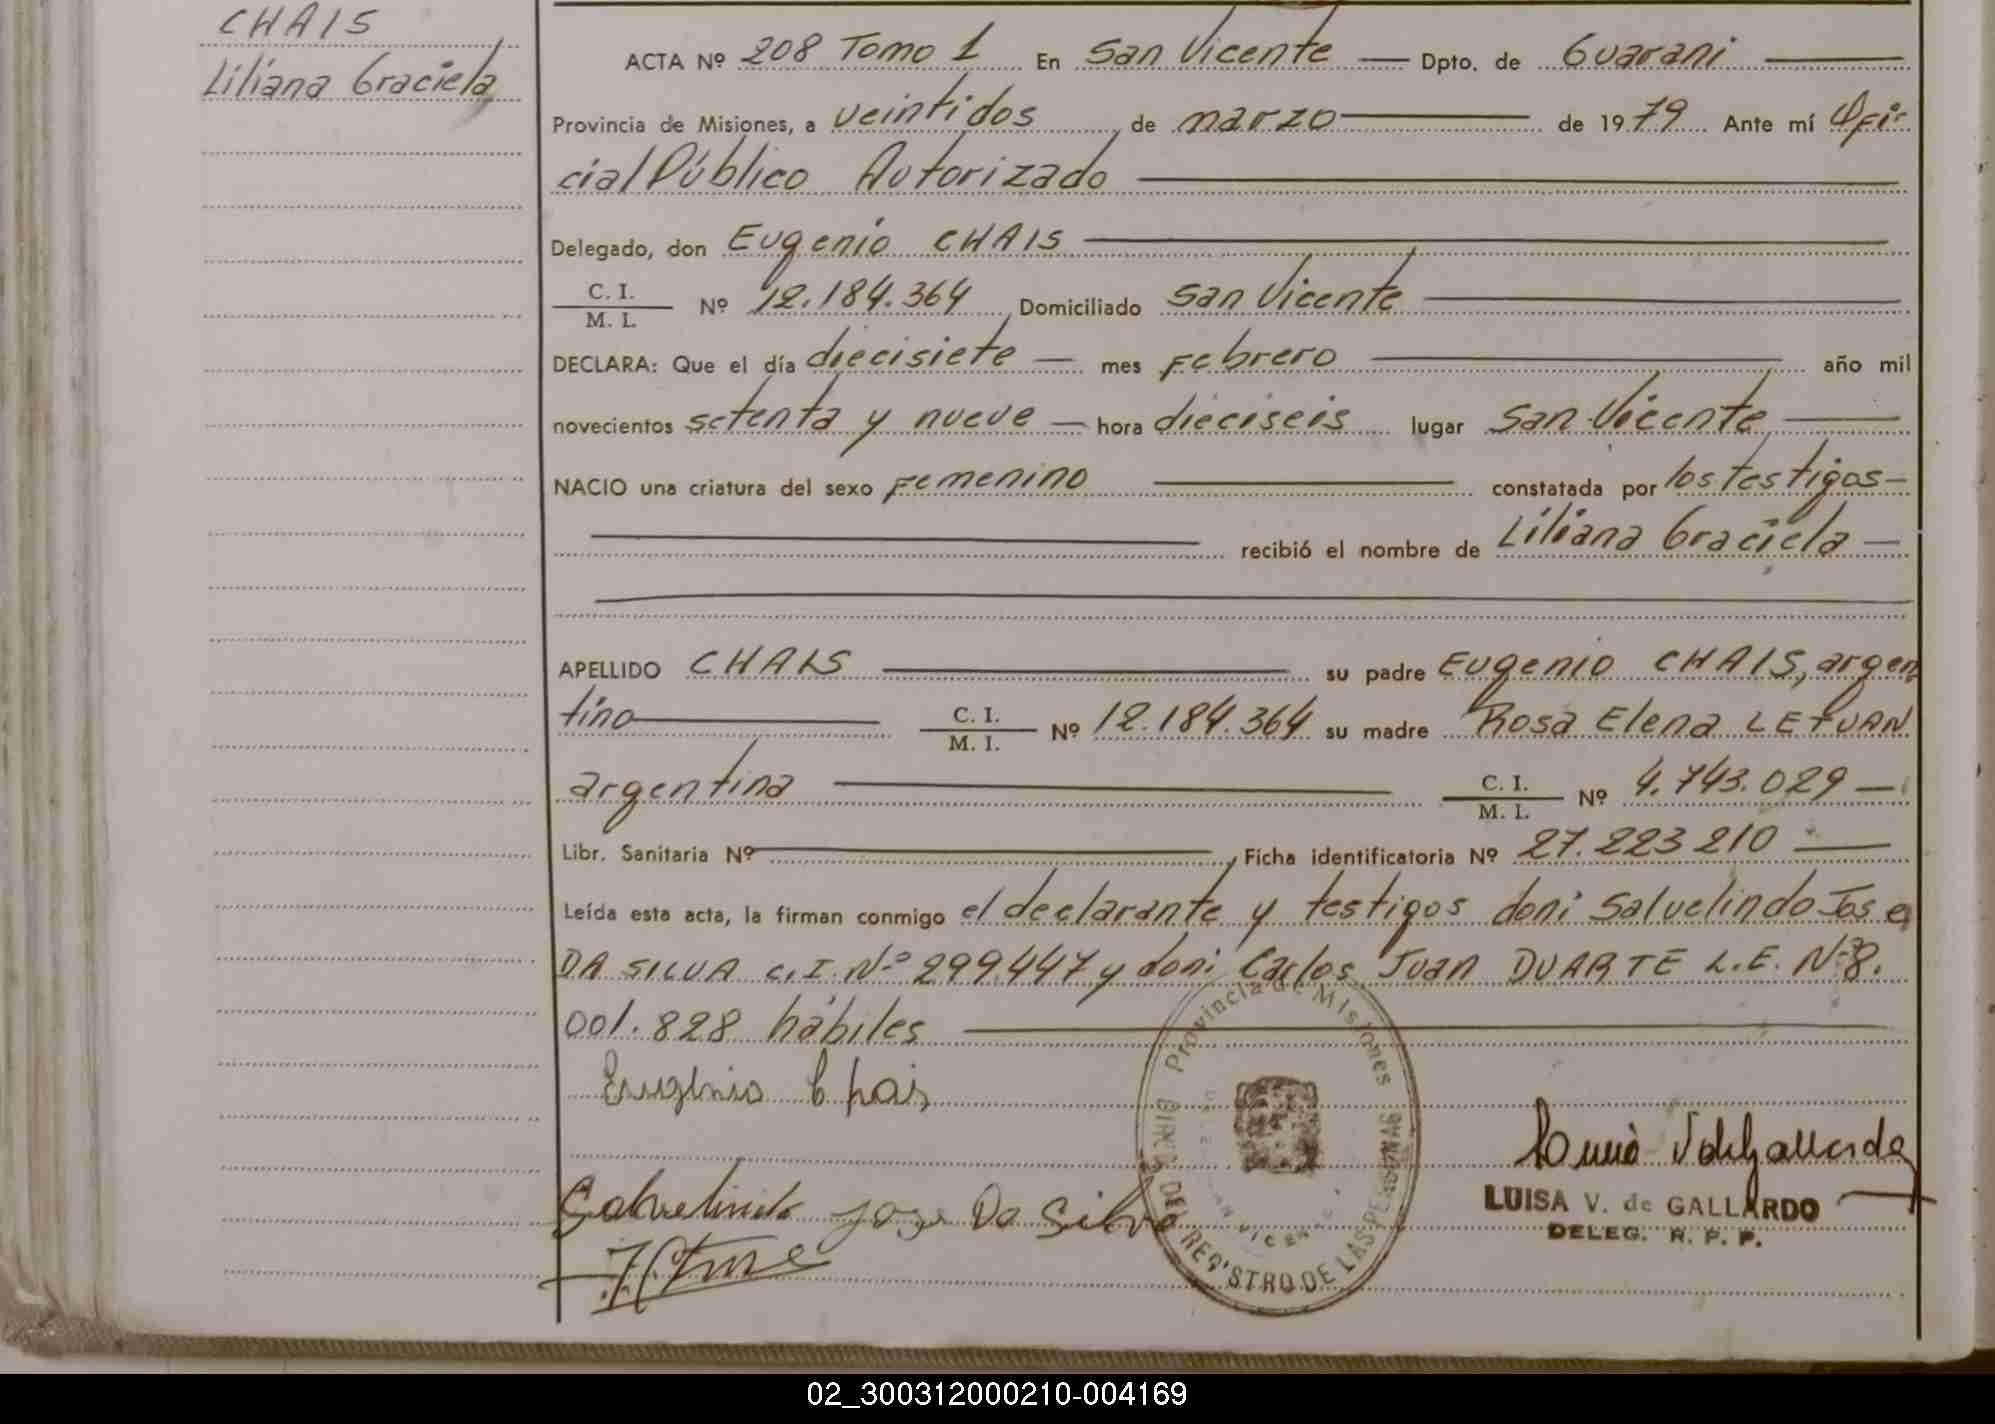 CHAIS
Liliana Graciela
ACTA Nº 208 Tomo 1 En San Vicente — Dpto. de Guarani —
Provincia de Misiones, a veintidos de marzo — de 1979 Ante mí Ofi-
cial Público Autorizado —
Delegado, don Eugenio CHAIS —
C. I. / M. I. Nº 12.184.364 Domiciliado San Vicente —
DECLARA: Que el día diecisiete — mes Febrero — año mil
novecientos setenta y nueve — hora dieciseis lugar San Vicente —
NACIO una criatura del sexo Femenino — constatada por los testigos —
— recibió el nombre de Liliana Graciela —
APELLIDO CHAIS — su padre Eugenio CHAIS, argen
tino — C. I. / M. I. Nº 12.184.364 su madre Rosa Elena LEFUAN
argentina — C. I. / M. I. Nº 4.743.029 —
Libr. Sanitaria Nº — Ficha identificatoria Nº 27.223210 —
Leída esta acta, la firman conmigo el declarante y testigos don: Salvelindo Jose
DA SILVA C.I. Nº 299.447 y don: Carlos Juan DUARTE L.E. Nº 8.
001.828 hábiles —
Eugenio Chais
Provincia de Misiones
DEL REGISTRO DE LAS PERSONAS
SAN VICENTE
Salvelindo Joze Da Silva
LUISA V. de GALLARDO
DELEG. R. P. P.
02_300312000210-004169